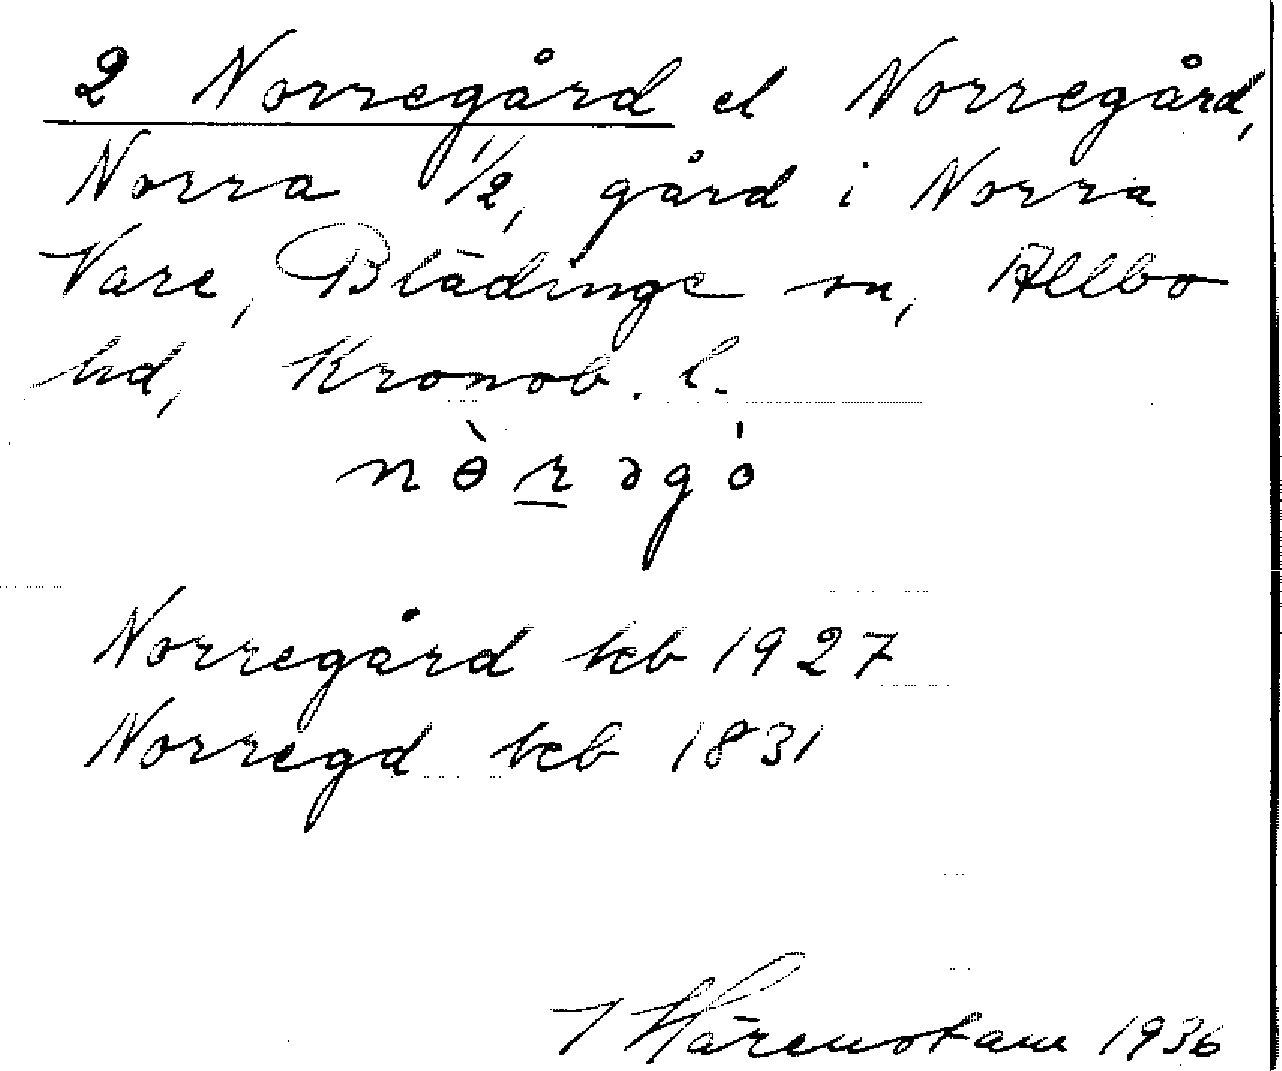 2 Norregård el Norregård,
Norra 1/2, gård i Norra
Vare, Blädinge sn, Allbo
hd, Kronob. l.
nɵ̀rəgó
Norregård kcb 1927
Norregd kcb 1831
I Härenstam 1936